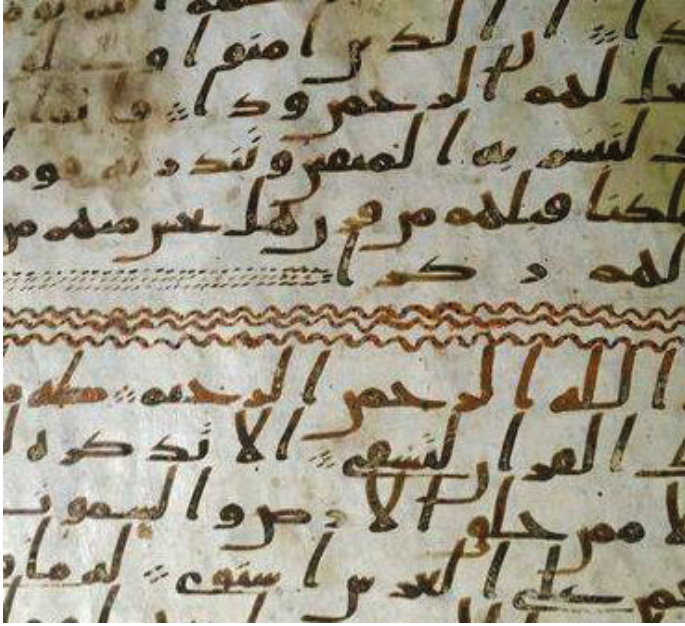 دا ان الذين امنوا و
عل لهم الرحمن ودا فانما
لتبشر به المتقين وتنذر به قوما
هلكنا قبلهم من قرن هل تحس منهم من
لهم ركزا
الله الرحمن الرحيم طه م
القران لتشقى الا تذكره ل
لا ممن خلق الارض والسموت
على العرش استوى له ما